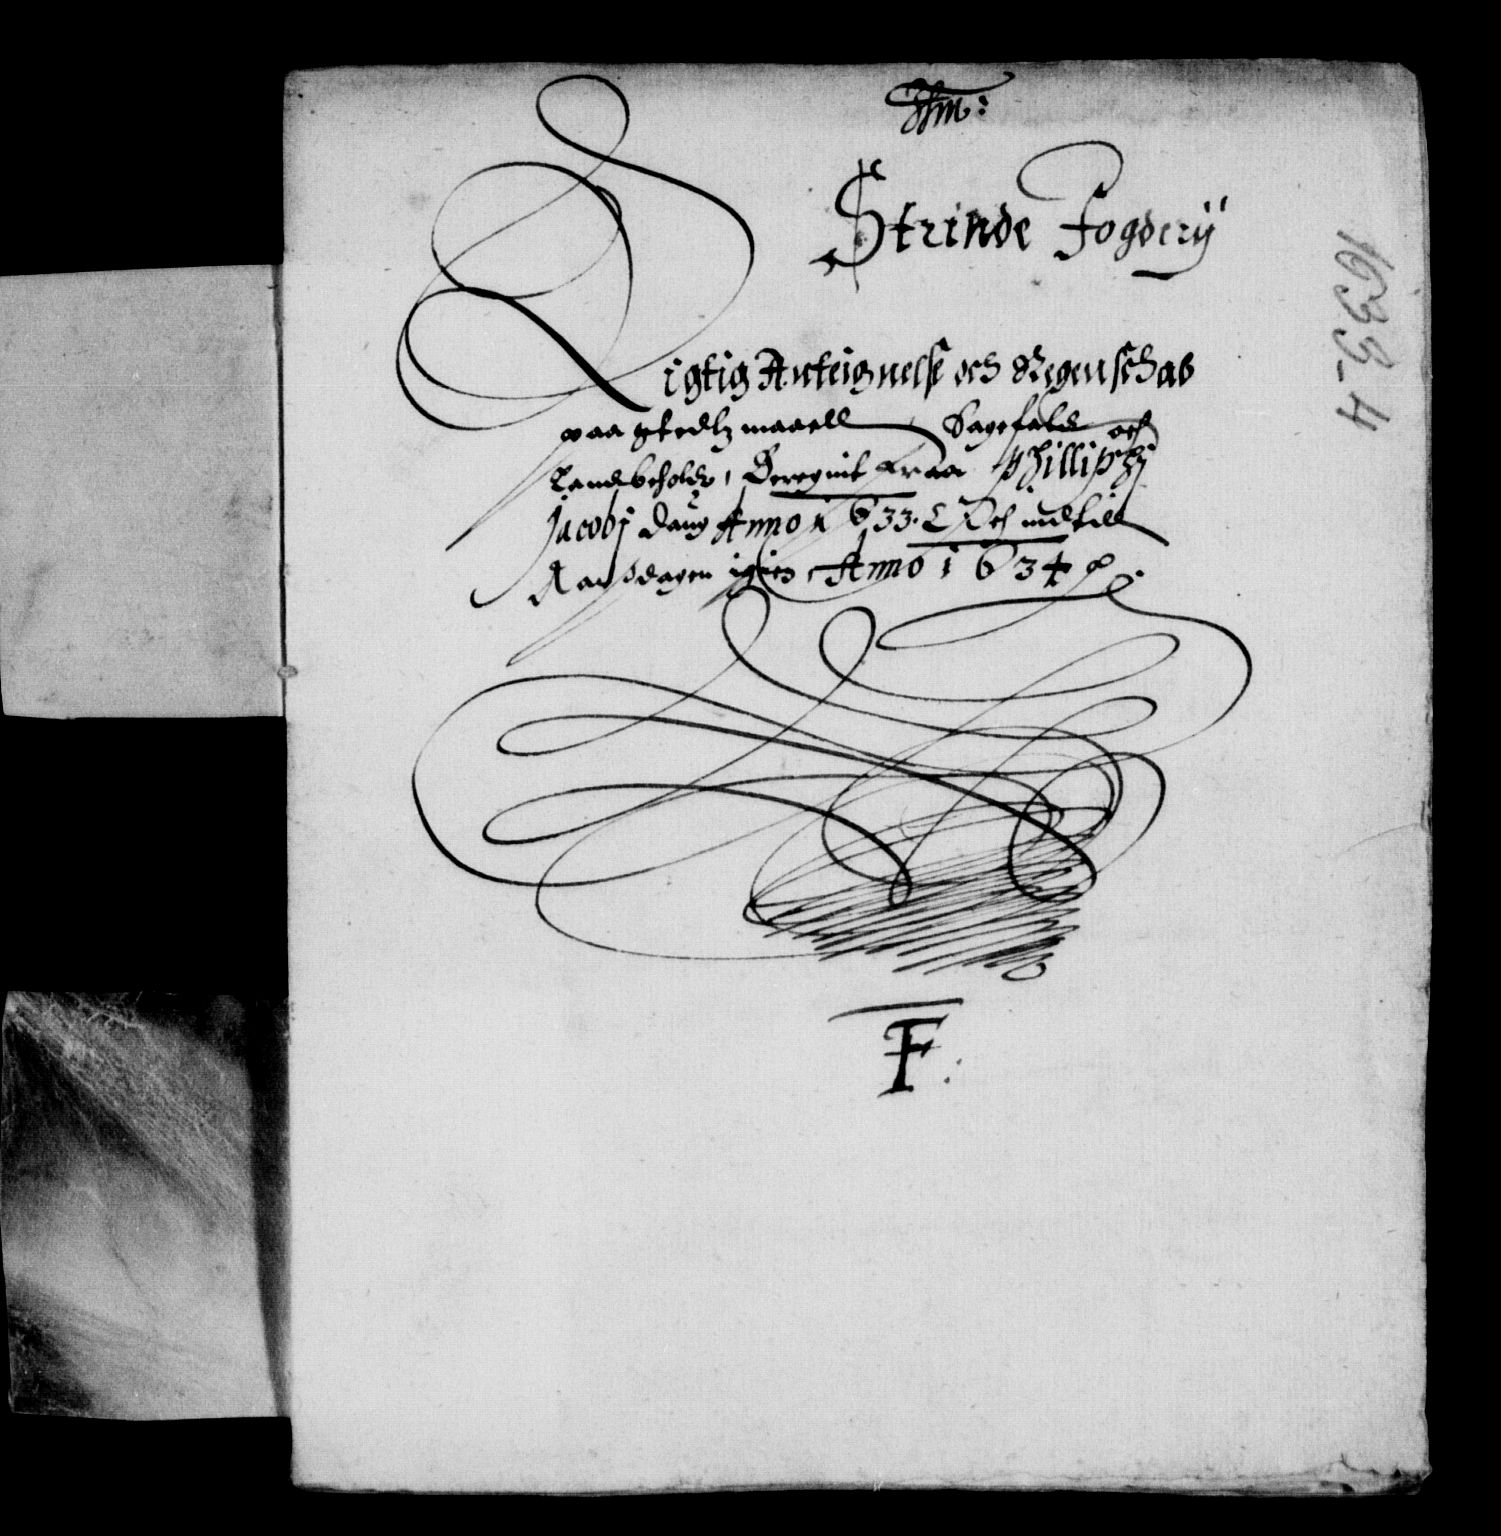 Strinde Fogderij
Rigtig Anteignelse och Regenschab
paa gtedlz maaell Sagefald och
Landbeholdr, Beregnit Fraa Phillipij
Jacobj daug Anno 1633. Och indtill
Aarsdagen igien Anno 1634
F.
1633-4